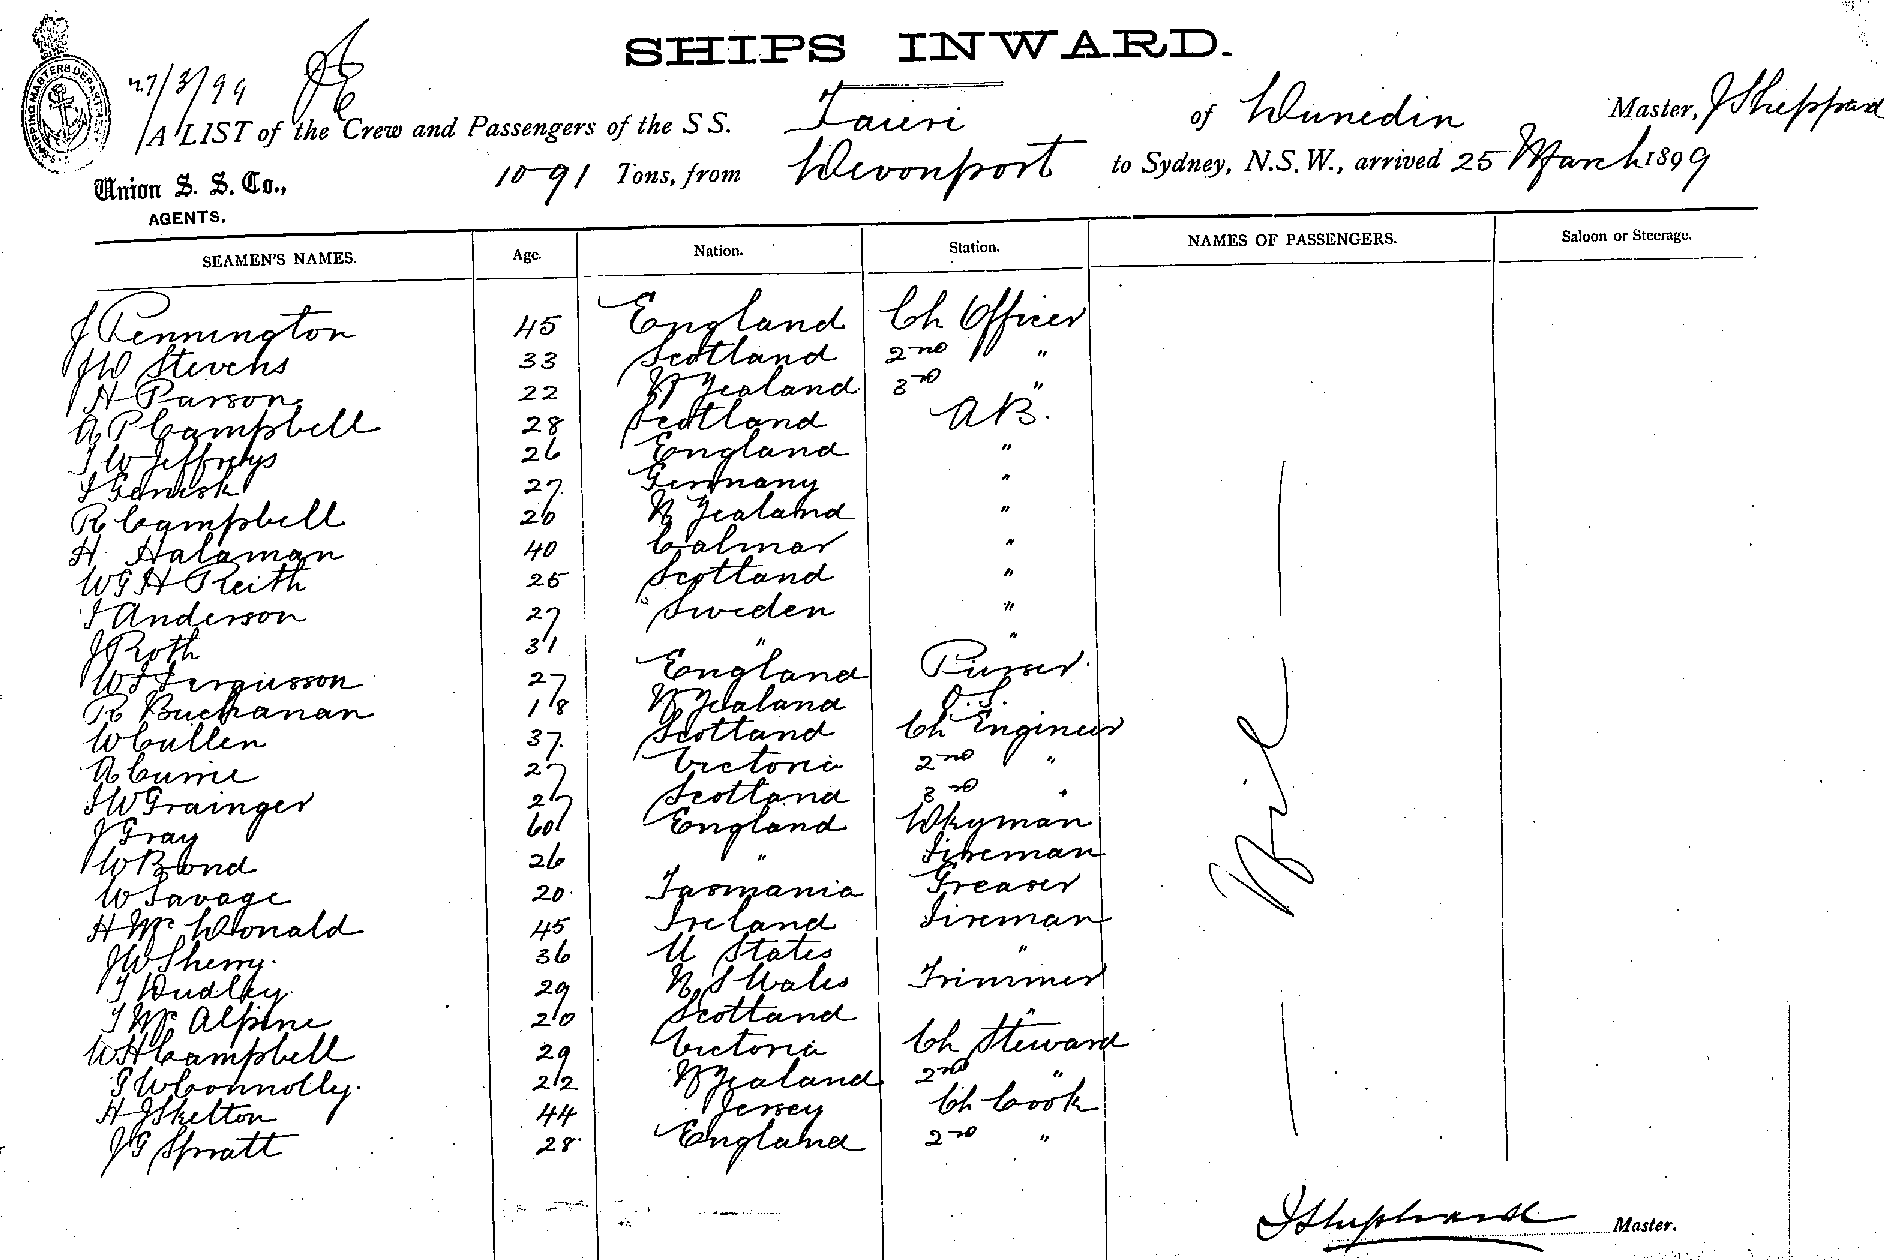 SHIPS INWARD.
27/3/99
A LIST of the Crew and Passengers of the S S. Taieri of Dunedin Master, J Sheppard
1091 Tons, from Devonport to Sydney, N.S.W., arrived 25 March 1899
Union S. S. Co.,
AGENTS.
SEAMEN'S NAMES. Age. Nation. Station. NAMES OF PASSENGERS. Saloon or Steerage.
J Pennington 45 England Ch Officer
J W Stevens 33 Scotland 2nd "
H Parson 22 N Zealand 3rd "
A P Campbell 28 Scotland A B.
J W Jeffreys 26 England "
27 Germany "
R Campbell 20 N Zealand "
H Halaman 40 Calmar "
W G H Reith 25 Scotland "
J Anderson 27 Sweden "
J Roth 31 " "
W J Fergusson 27 England Purser
R Buchanan 18 N Zealand O.S.
W Cullen 37 Scotland Ch Engineer
A Currie 27 Victoria 2nd "
J W Grainger 27 Scotland 3rd "
J Gray 60 England Dkyman
W Bond 26 " Fireman
W Savage 20 Tasmania Greaser
H McDonald 45 Ireland Fireman
J W Sherry 36 U States "
T Dudley 29 N S Wales Trimmer
T McAlpine 20 Scotland "
W H Campbell 29 Victoria Ch Steward
P W Connolly 22 N Zealand 2nd "
H J Skelton 44 Jersey Ch Cook
J G Spratt 28 England 2nd "
Nil
J Shepheard Master.